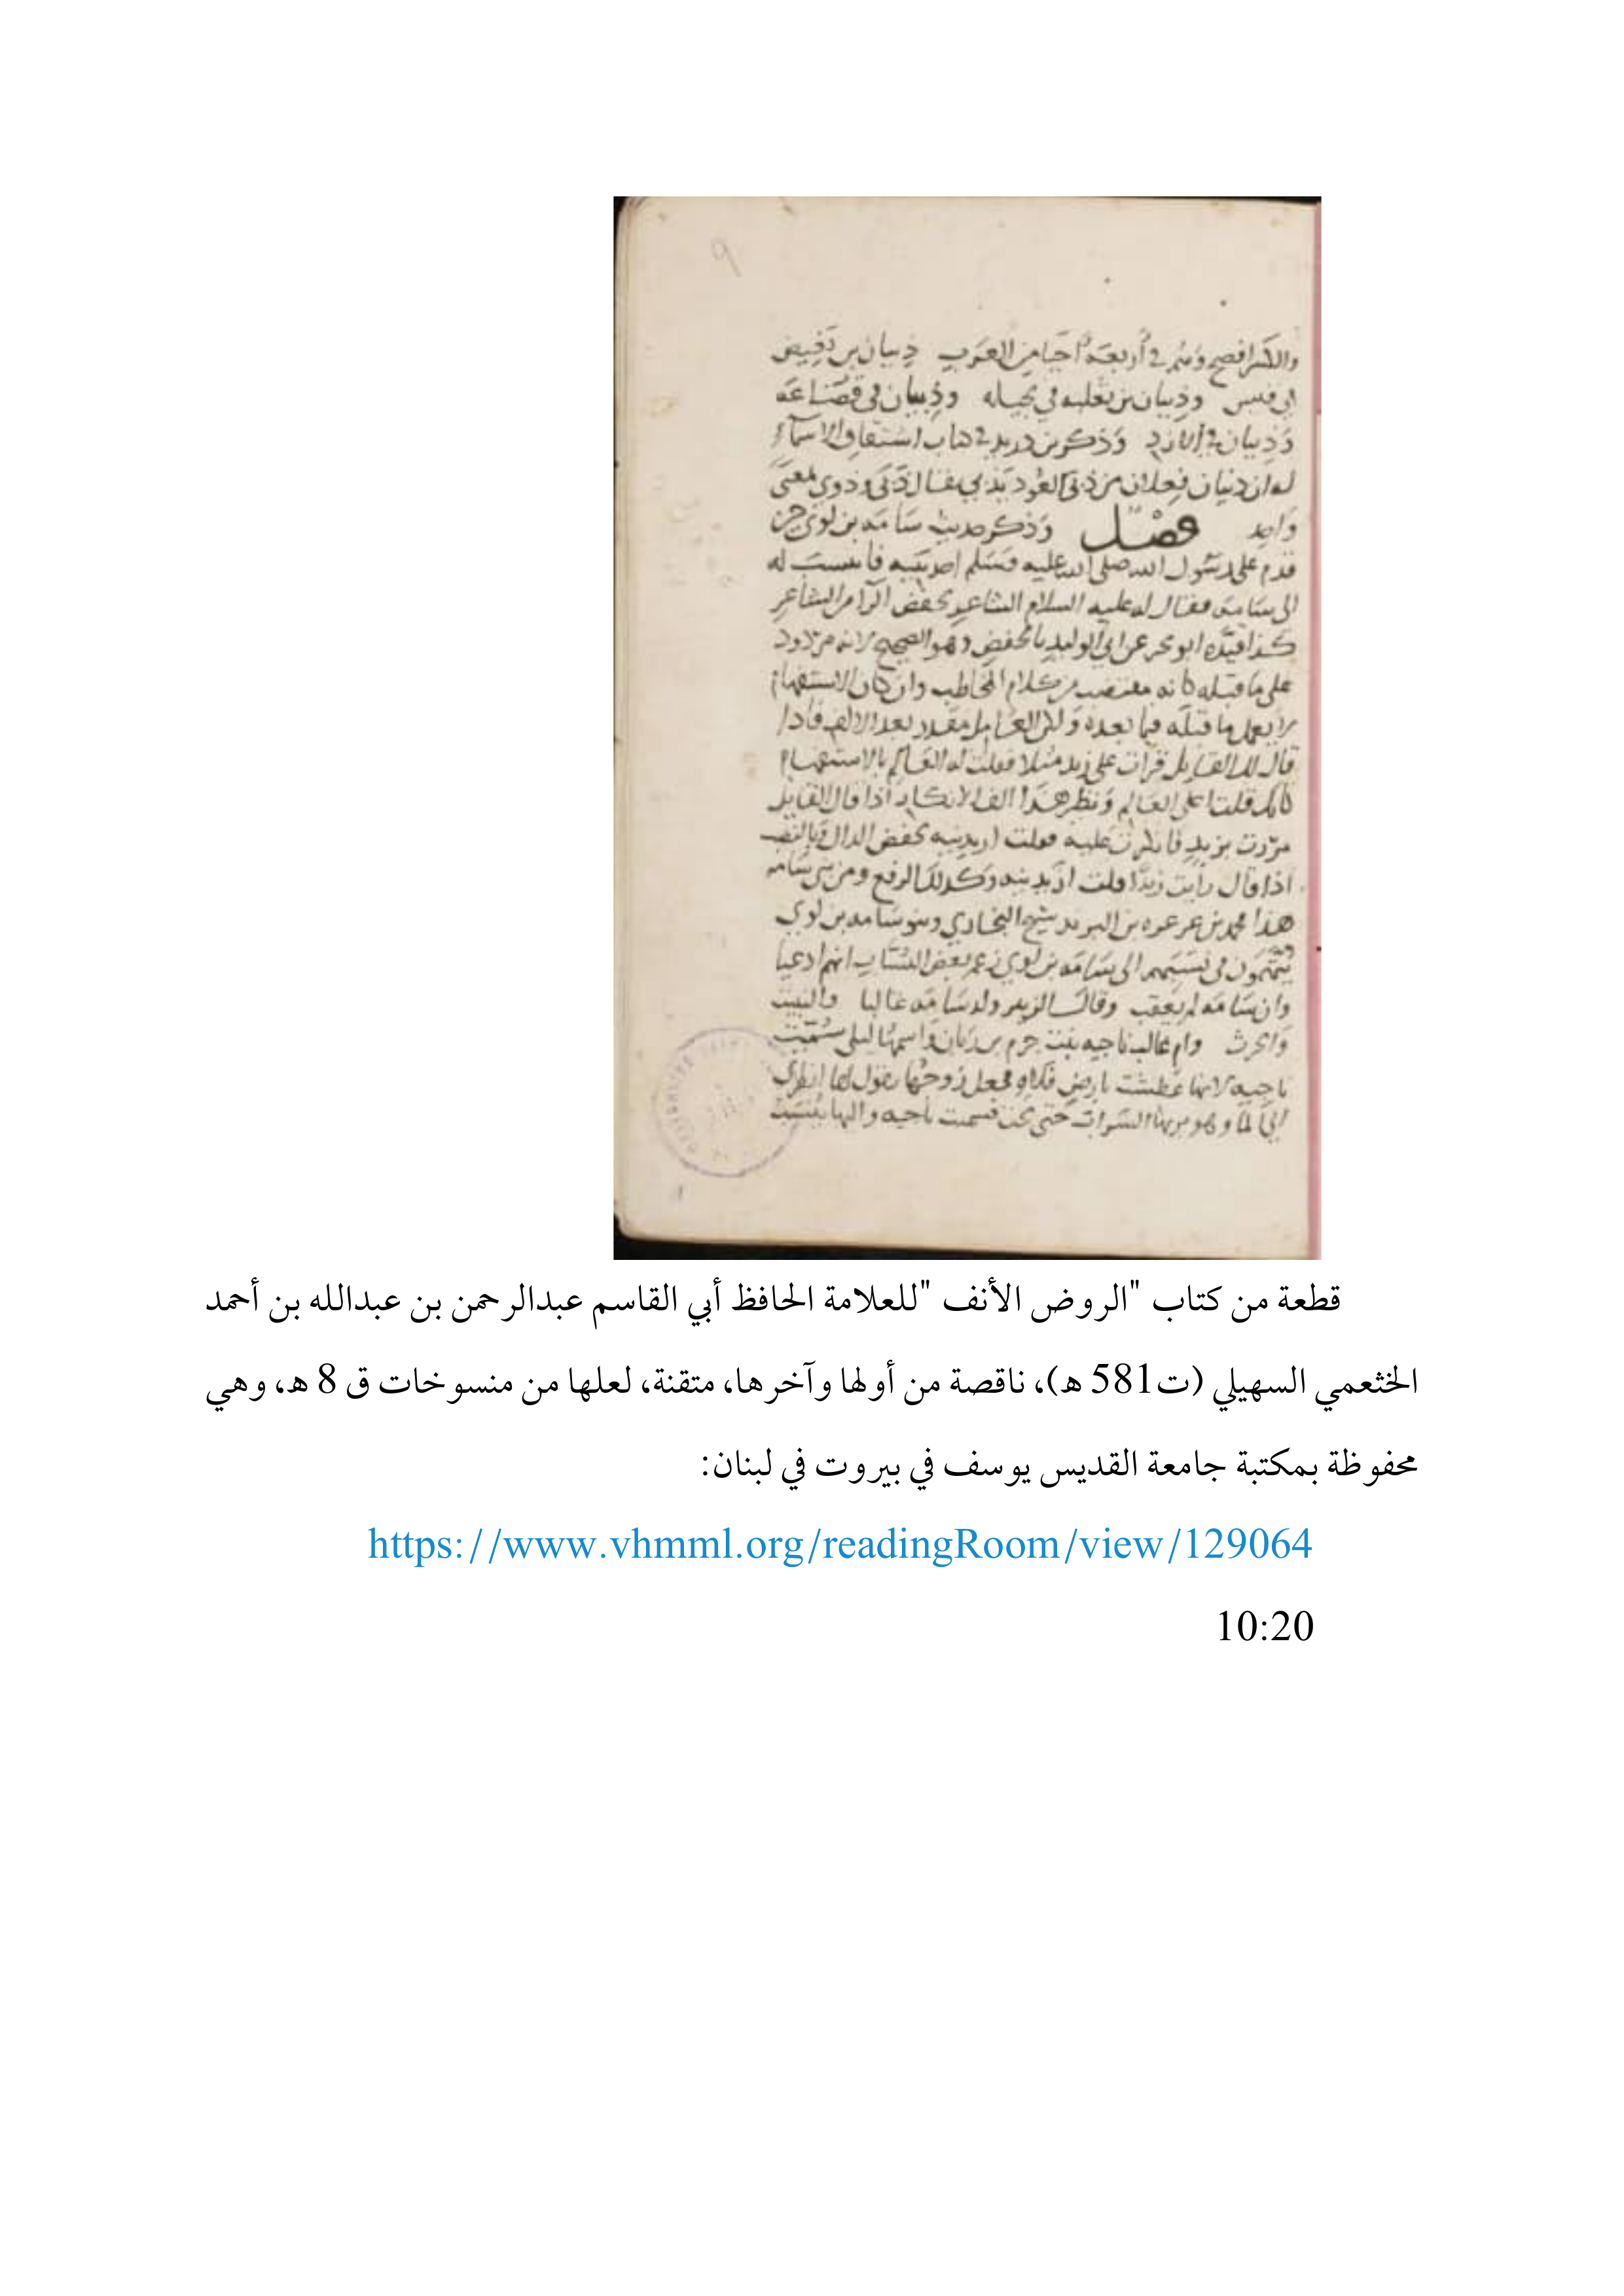 والكسر افصح وهم في أربعة احيا من العرب ذبيان بن بغيض
في قيس وذبيان بن ثعلبه في بجيله وذبيان في قضاعه
وذبيان في الازد وذكر بن دريد في كتاب اشتقاق الاسماء
له ان ذبيان فعلان من ذبى العود يذبي يقال ذبى وذوي بمعنى
واحد فصل وذكر حديث سامه بن لوي حين
قدم على رسول الله صلى الله عليه وسلم احد بنيه فانتسب له
الى سامة فقال له عليه السلام الشاعر بخفض الرا من الشاعر
كذا قيده ابو بحر عن ابي الوليد بالخفض وهو الصحيح لانه مردود
على ما قبله كانه مقتضب من كلام المخاطب وان كان الاستفهام
لا يعمل ما قبله فيما بعده ولكن العامل مقدر بعد الالف فاذا
قال لك القايل قرات على زيد مثلا فقلت له العالم بالاستفهام
كانك قلت اعلى العالم ونظير هذا الف الانكار اذا قال القايل
مررت بزيد فانكرت عليه فقلت ازيدنيه بخفض الدال وبالنصب
اذا قال رايت زيدا قلت ازيدنيه وكذلك الرفع ومن بني سامه
هذا محمد بن عرعره بن البرند شيخ البخاري وبنو سامه بن لوي
في نسبهم الى سامه بن لوي زعم بعض النساب انهم ادعيا
وان سامه لم يعقب وقال الزبير ولد سامه غالبا والنبيت
والحرث وام غالب ناجيه بنت جرم بن زبان واسمها ليلى سميت
ناجيه لانها عطشت بارض فلاه فجعل زوجها يقول لها انظري
الى الما وهو يريها السراب حتى نجت فسميت ناجيه واليها ينسب
قطعة من كتاب "الروض الأنف "للعلامة الحافظ أبي القاسم عبدالرحمن بن عبدالله بن أحمد
الخثعمي السهيلي (ت581 ه)، ناقصة من أولها وآخرها، متقنة، لعلها من منسوخات ق 8 ه، وهي
محفوظة بمكتبة جامعة القديس يوسف في بيروت في لبنان:
https://www.vhmml.org/readingRoom/view/129064
10:20